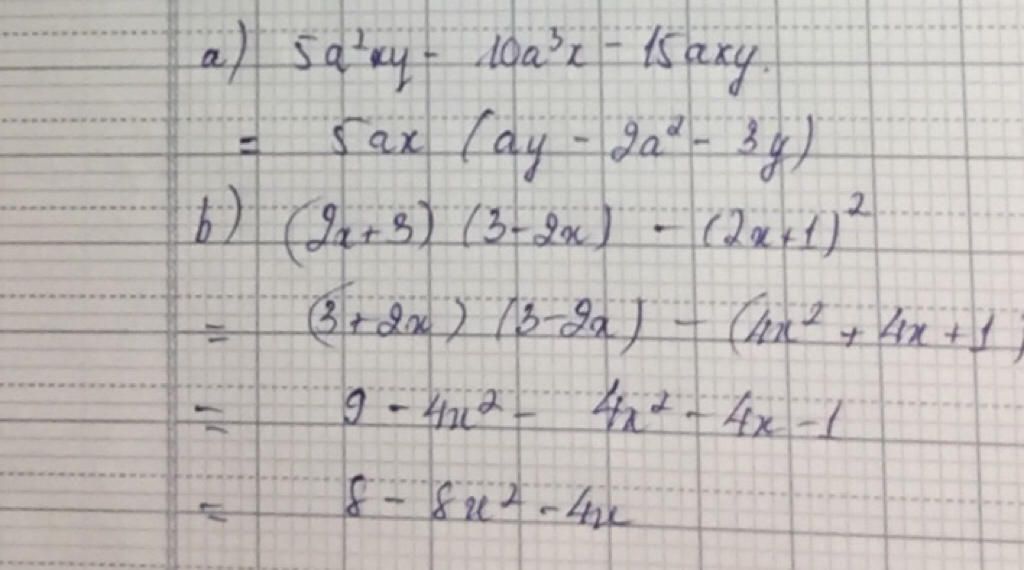 a) 5a²xy - 10a³x - 15axy.
= 5ax (ay - 2a² - 3y)
b) (2x+3) (3-2x) - (2x+1)²
= (3+2x) (3-2x) - (4x² + 4x + 1)
= 9 - 4x² - 4x² - 4x - 1
= 8 - 8x² - 4x